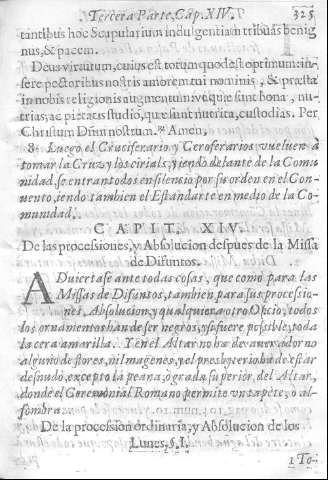 Tercera Parte, Cap. XIV. 325
tantibus hoc Scapularium indulgentiam tribuas benig
nus, & pacem.
Deus virtutum, cuius est totum quod est optimum: in-
sere pectoribus nostris amorem tui nominis, & præsta
in nobis religionis augmentum: vt quæ sunt bona, nu-
trias, ac pietatis studio, quæ sunt nutrita, custodias. Per
Christum Dñm nostrum. ℟ Amen.
8. Luego el Cruciferario y Ceroferarios vueluen à
tomar la Cruz y los ciriales, y iendo delante de la Comu
nidad, se entran todos en silencio por su orden en el Con-
uento, iendo tambien el Estandarte en medio de la Co-
munidad.
CAPIT. XIV.
De las processiones, y Absolucion despues de la Missa
de Difuntos.
ADuiertase ante todas cosas, que como para las
Missas de Difuntos, tambien para sus procession-
nes, Absolucion, y qualquiera otro Oficio, todos
los ornamentos han de ser negros, y si fuere possible, toda
la cera amarilla. Ten el Altar no ha de auer adorno
alguno de flores, ni Imagenes, y el presbyterio ha de estar
desnudo, excepto la peana, ò grada superior, del Altar,
donde el Ceremonial Romano permite vn tapete, o al-
fombra.
De la procession ordinaria, y Absolucion de los
Lunes. §. I.
1 To-